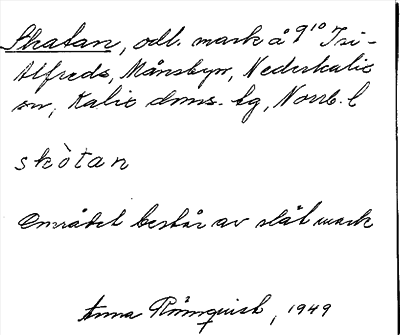 Skatan, odl. mark å g⁹¹⁰ Isi-
Alfreds, Månsbyn, Nederkalix
sn, Kalix dms. tg, Norrb. l
skòtan
Området består av slät mark
Anna Römquist, 1949